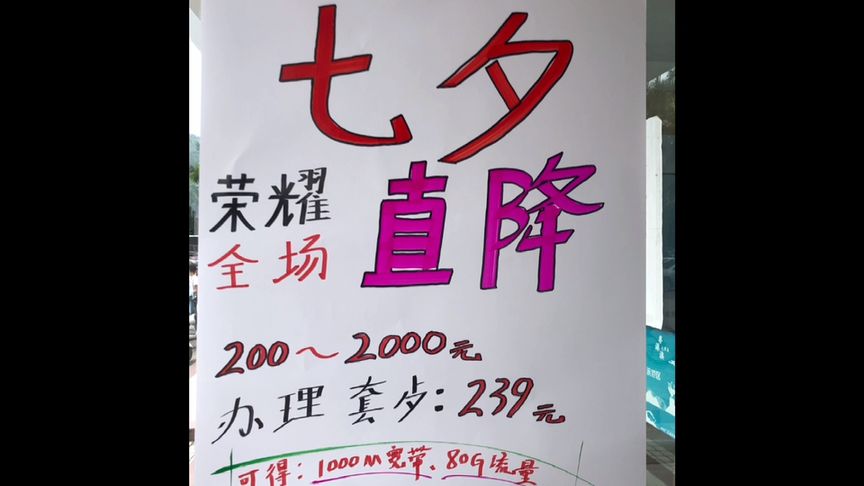 七夕
荣耀
全场
直降
200～2000元
办理套歺：239元
可得：1000M宽带、80G流量